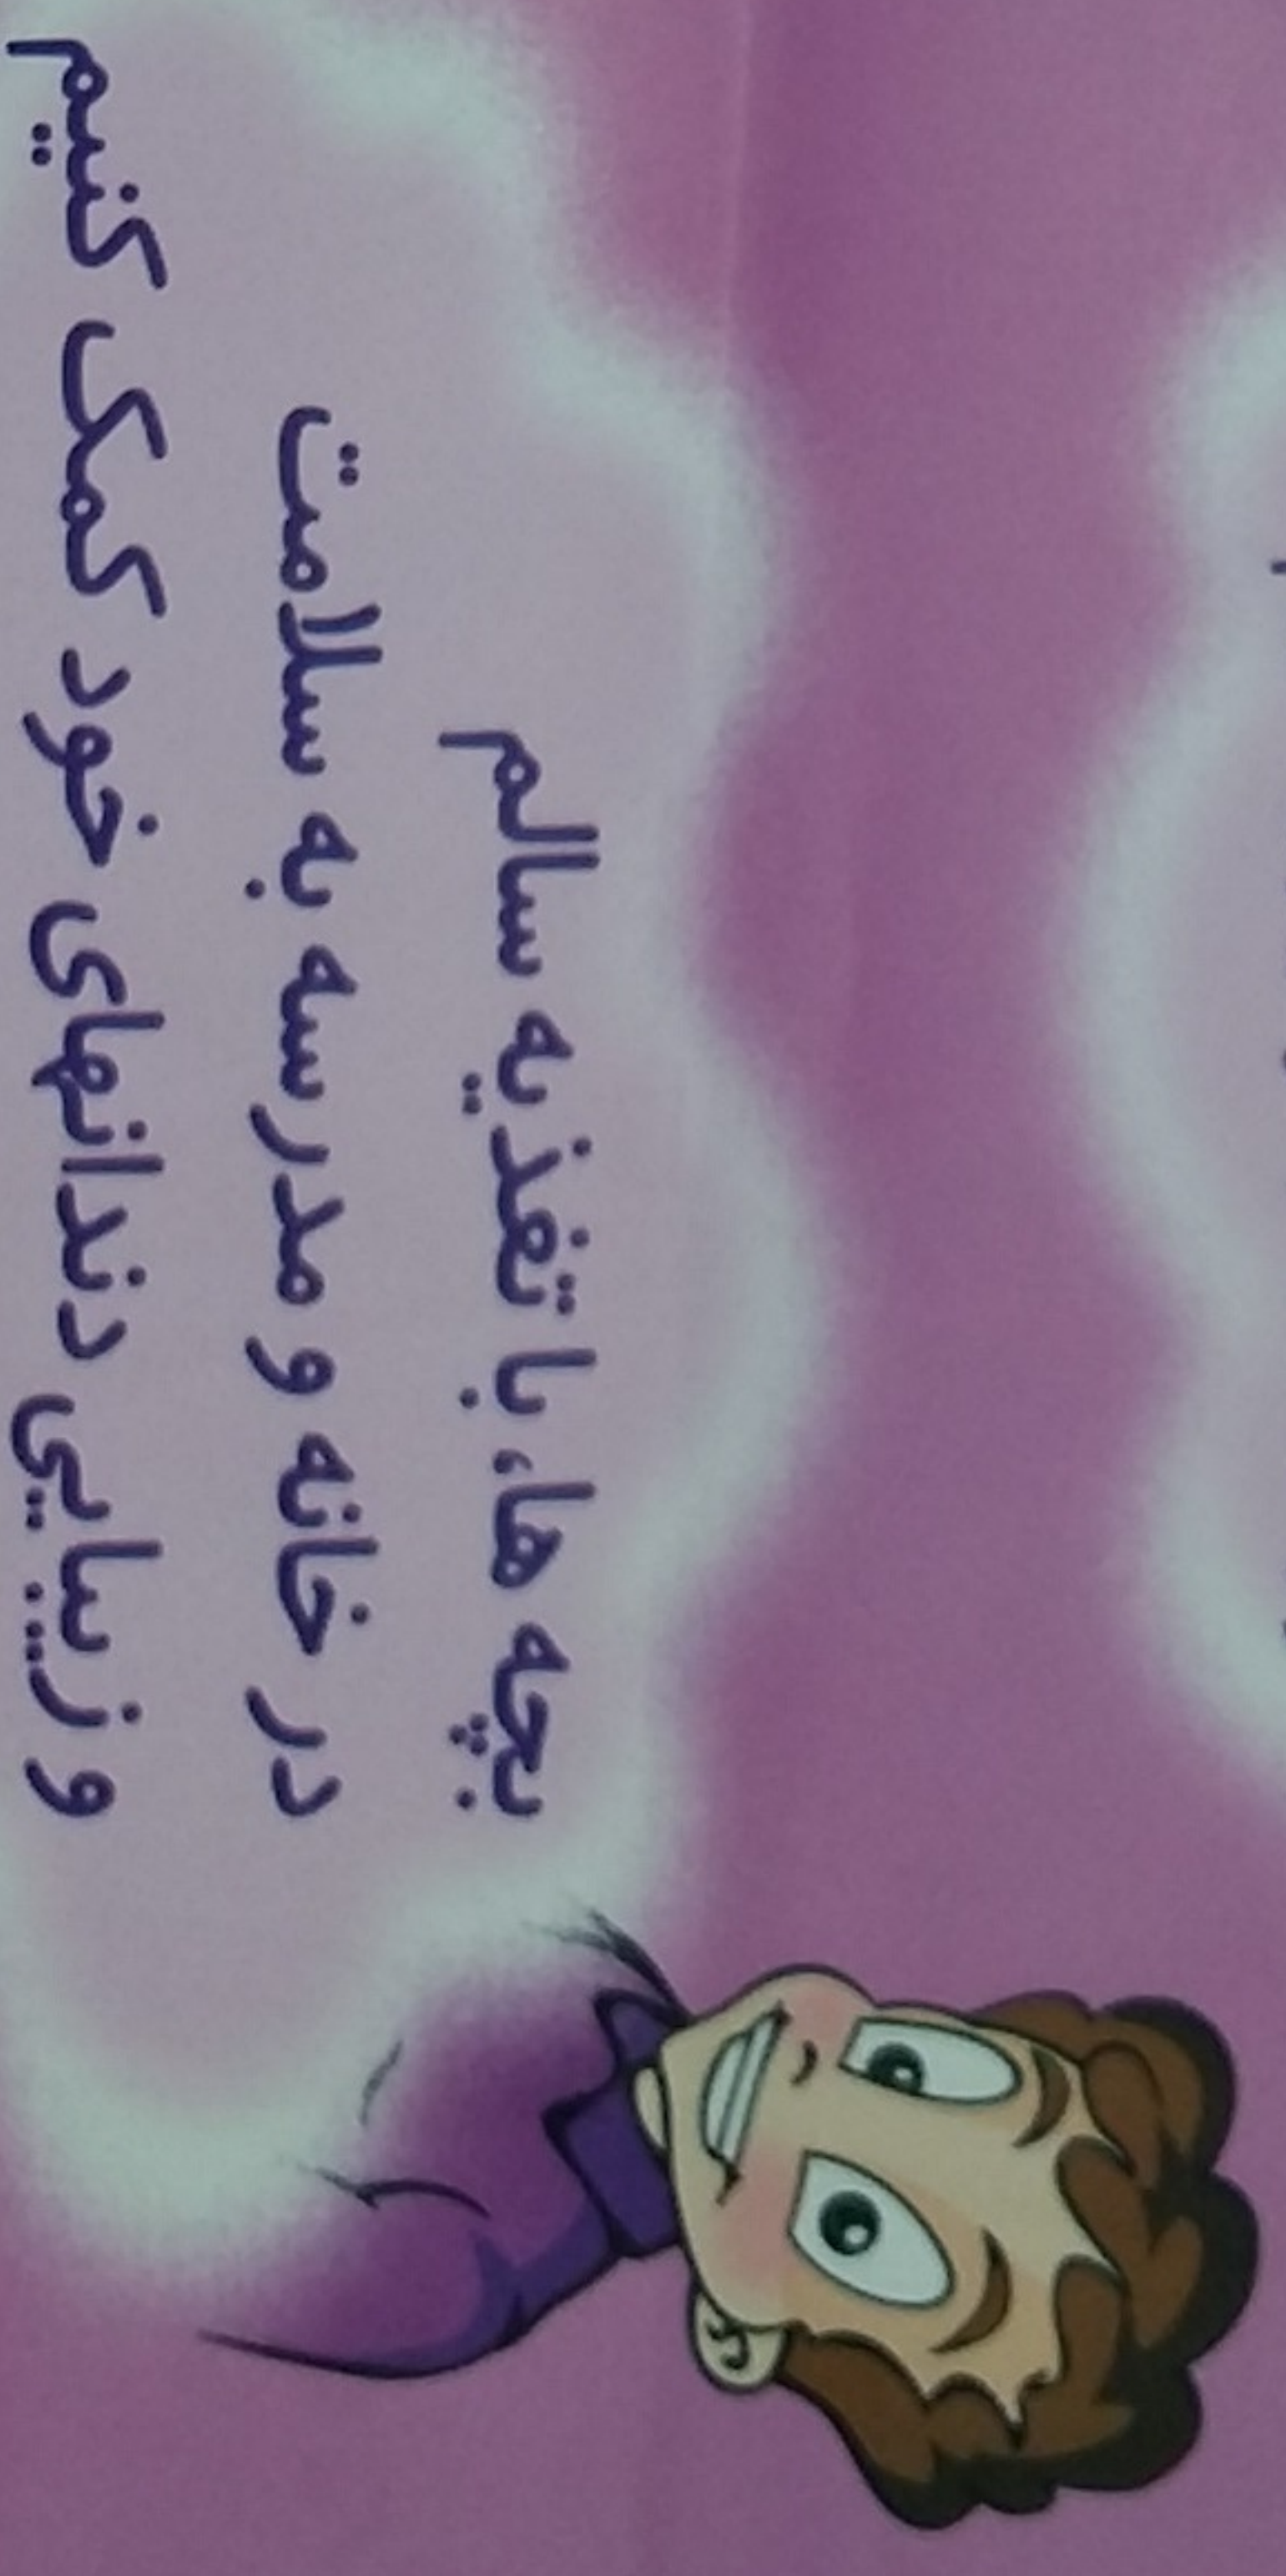 بچه ها، با تغذیه سالم
در خانه و مدرسه به سلامت
و زیبایی دندانهای خود کمک کنیم